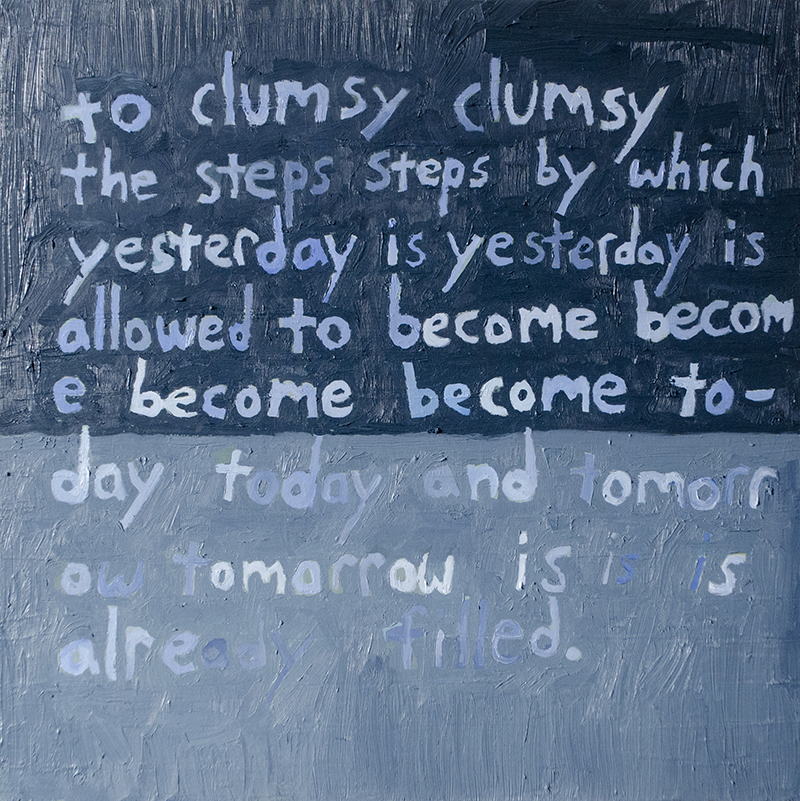 to clumsy clumsy
the steps steps by which
yesterday is yesterday is
allowed to become becom
e become become to-
day today and tomorr
ow tomorrow is is is
already filled.